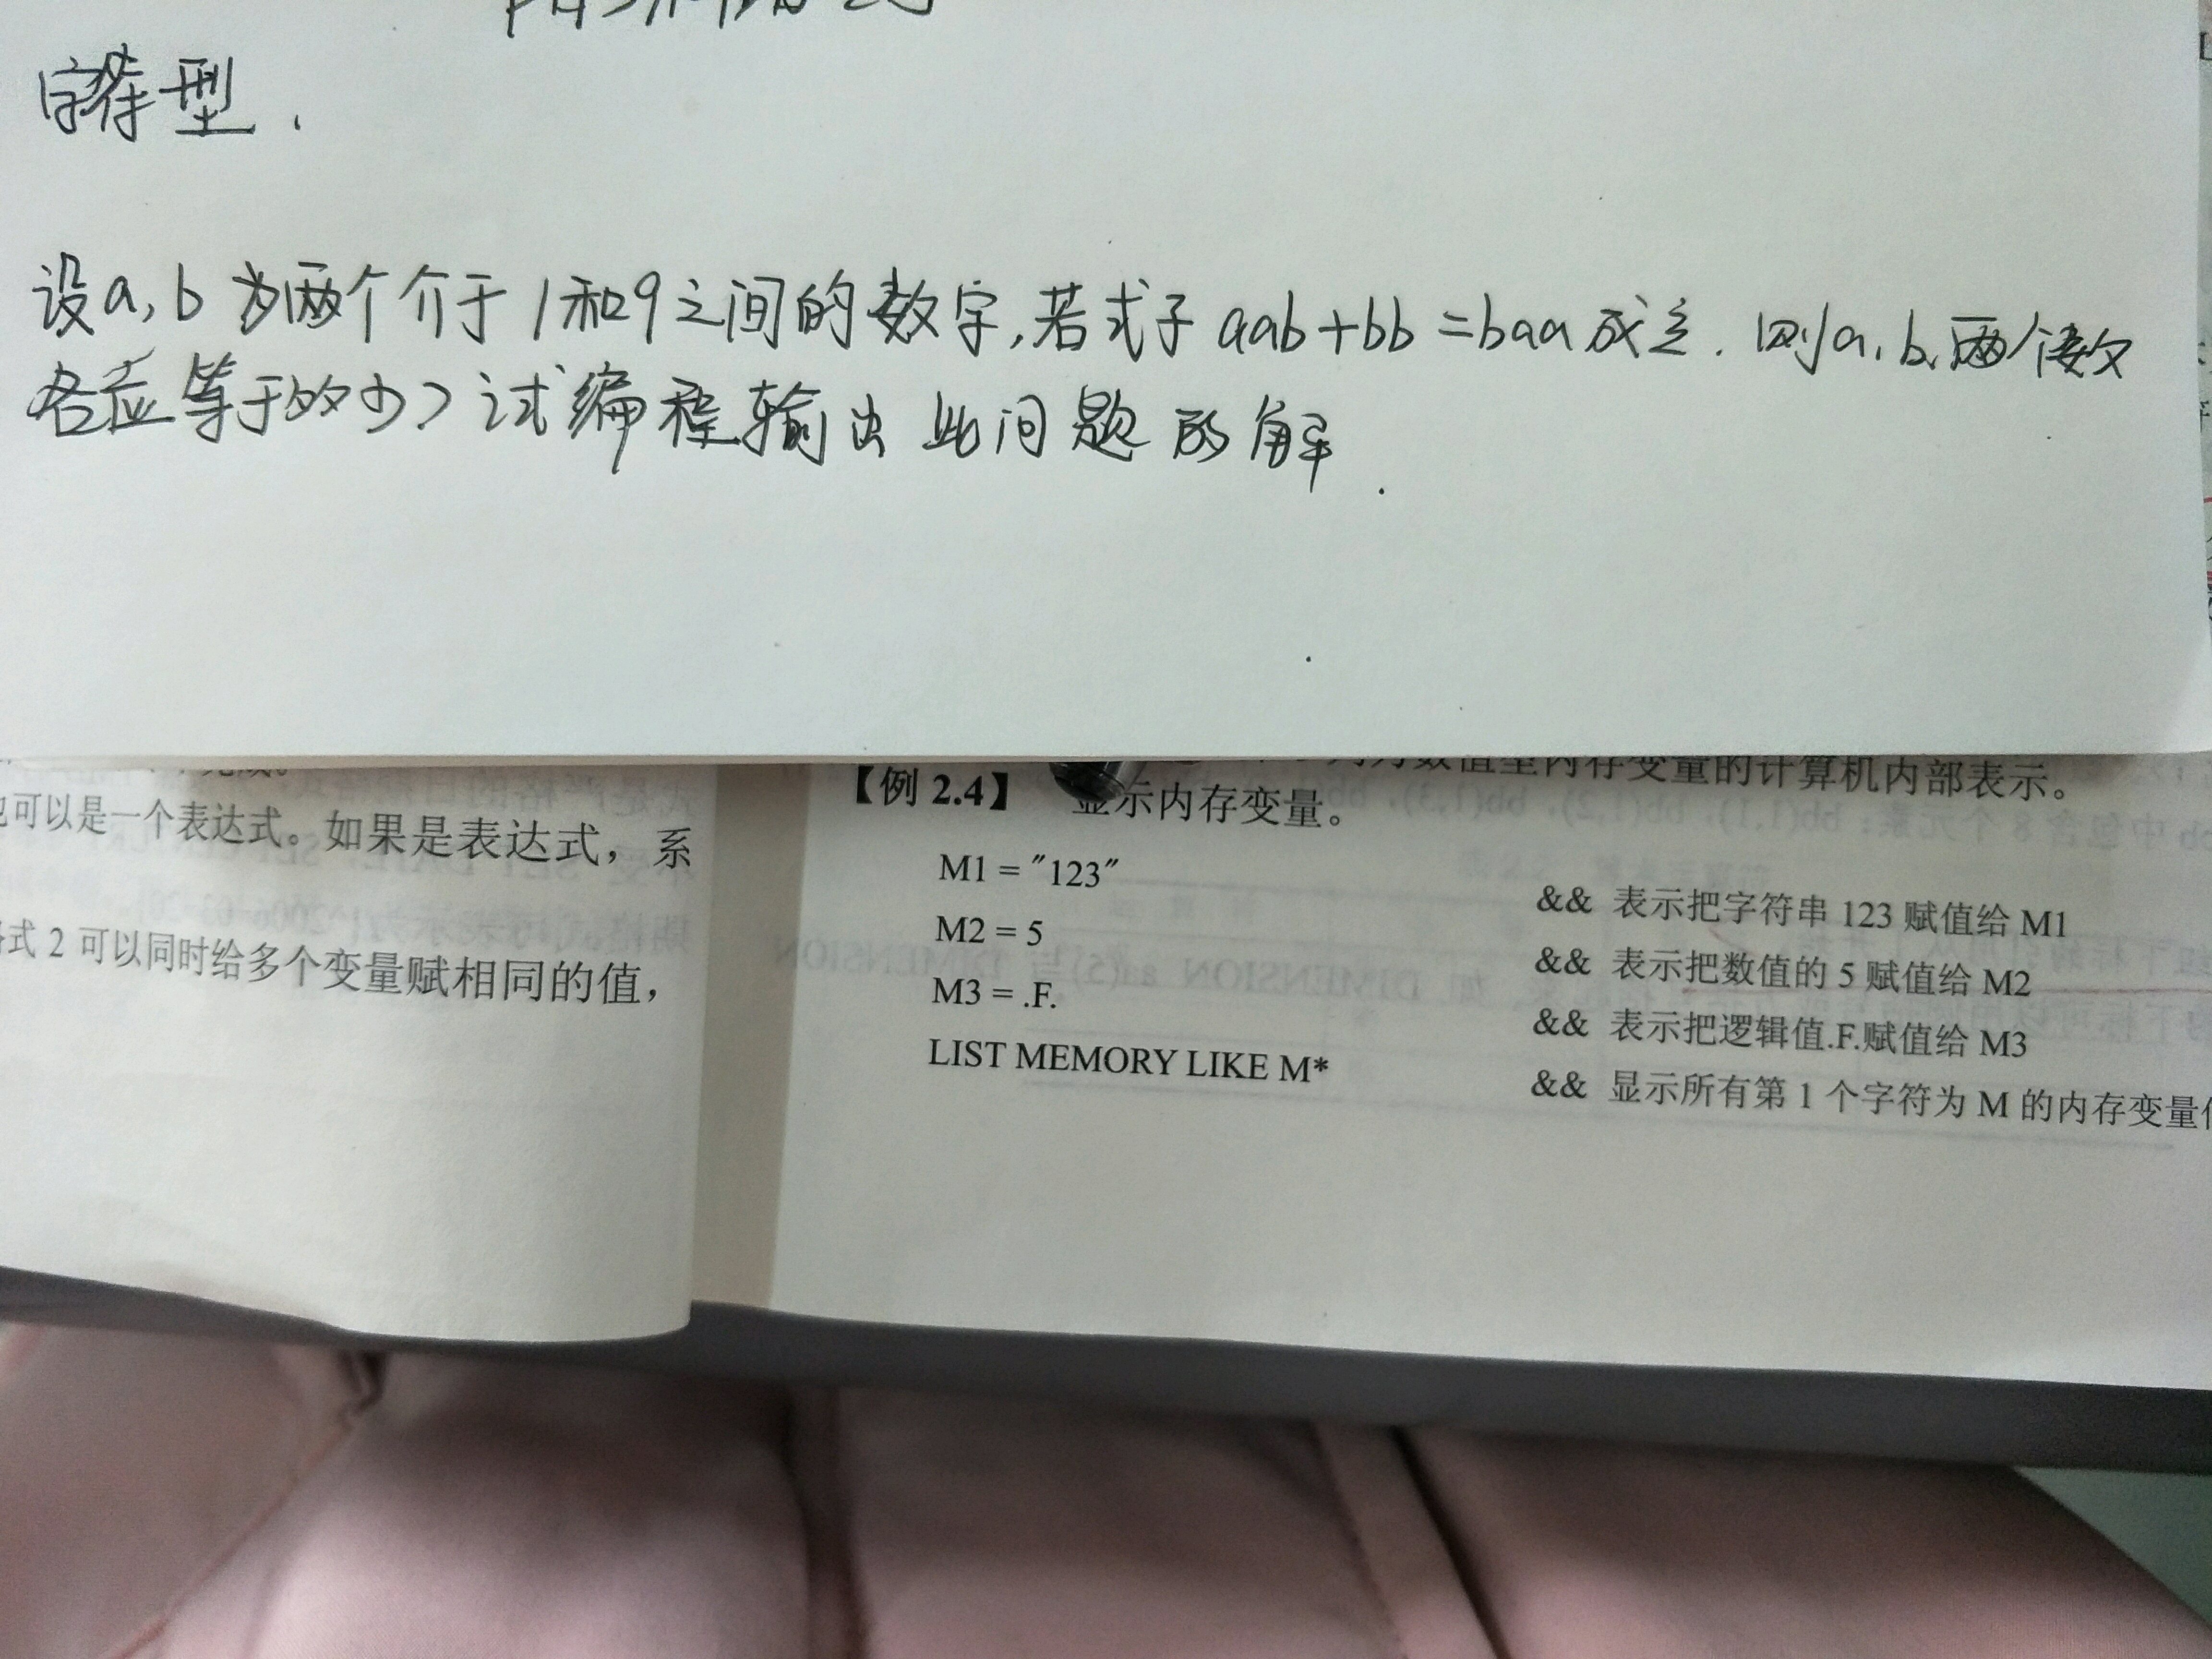 字符型.
设a,b为两个介于1和9之间的数字,若式子aab+bb=baa成立.则a,b,两个数
各应等于多少?试编程输出此问题的解.
也可以是一个表达式。如果是表达式,系
式 2 可以同时给多个变量赋相同的值,
数值型内存变量的计算机内部表示。
【例 2.4】 显示内存变量。
M1 = "123" && 表示把字符串 123 赋值给 M1
M2 = 5 && 表示把数值的 5 赋值给 M2
M3 = .F. && 表示把逻辑值.F.赋值给 M3
LIST MEMORY LIKE M* && 显示所有第 1 个字符为 M 的内存变量